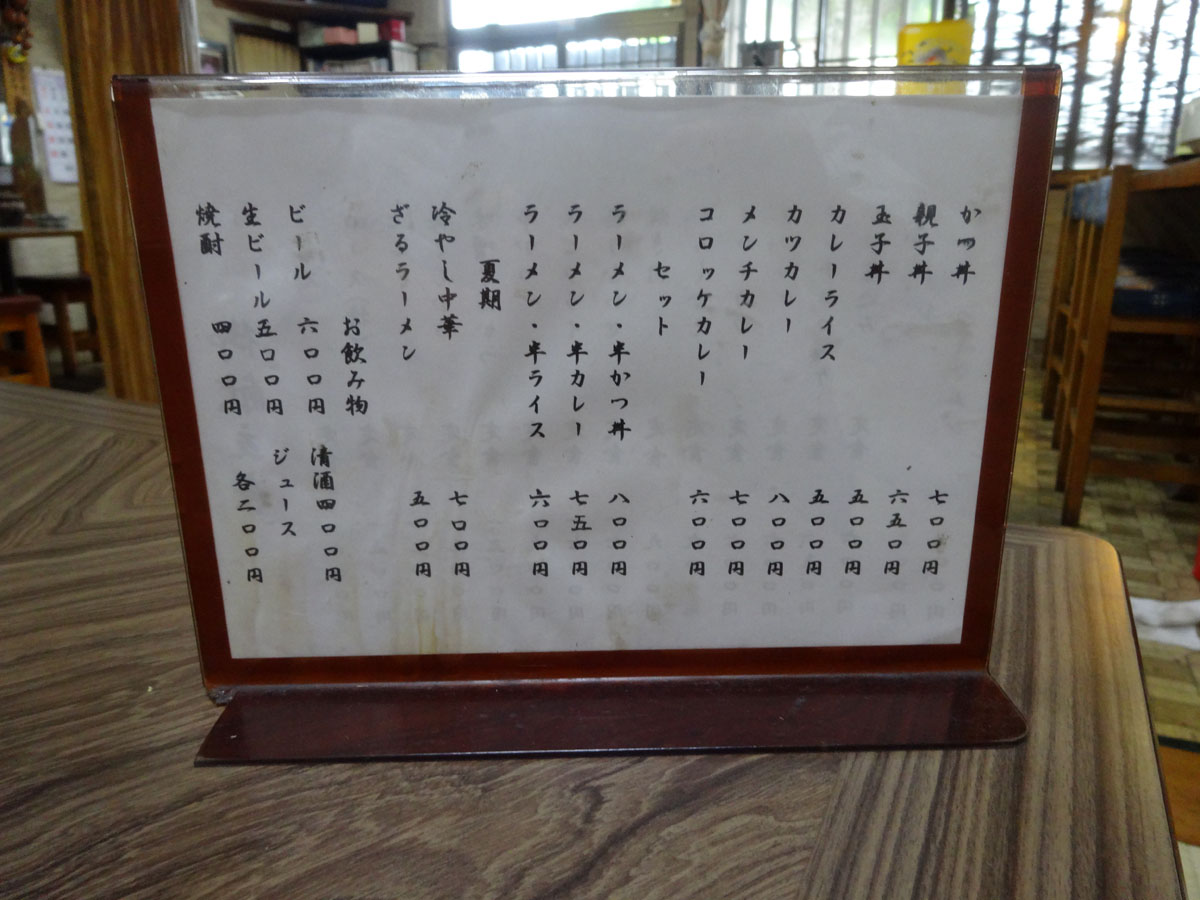 かつ丼 七〇〇円
親子丼 六五〇円
玉子丼 五〇〇円
カレーライス 五〇〇円
カツカレー 八〇〇円
メンチカレー 七〇〇円
コロッケカレー 六〇〇円
セット
ラーメン・半かつ丼 八〇〇円
ラーメン・半カレー 七五〇円
ラーメン・半ライス 六〇〇円
夏期
冷やし中華 七〇〇円
ざるラーメン 五〇〇円
お飲み物
ビール 六〇〇円 清酒四〇〇円
生ビール 五〇〇円 ジュース
焼酎 四〇〇円 各二〇〇円